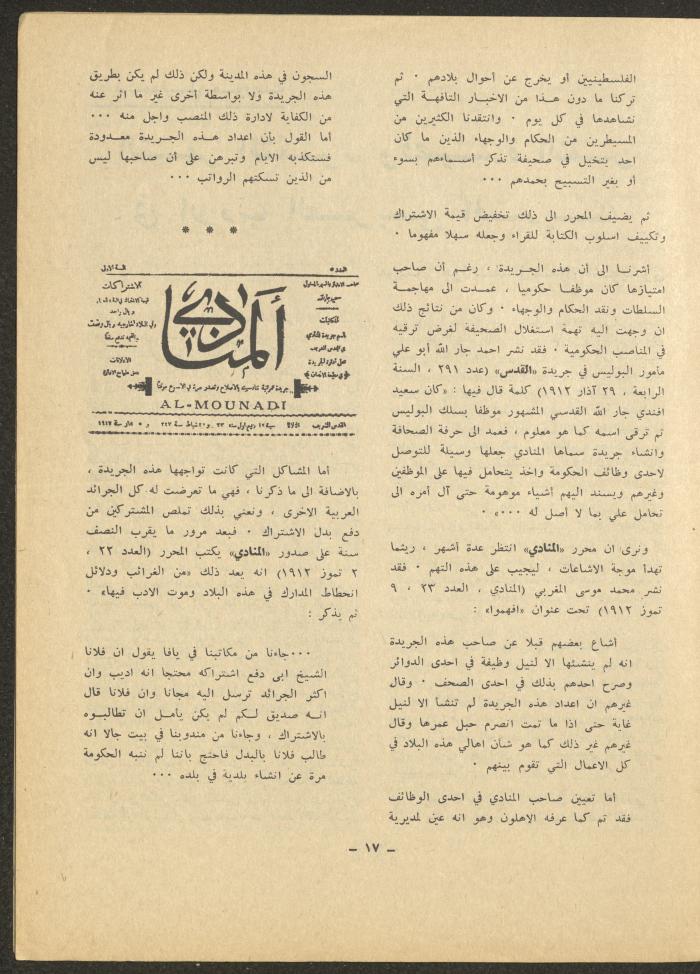 الفلسطينيين أو يخرج عن أحوال بلادهم ٠ ثم
تركنا ما دون هـذا من الاخبـار التافهـة التي
نشاهدها في كل يوم ٠ وانتقدنا الكثيرين من
المسيطرين من الحكام والوجهاء الذين ما كان
احد يتخيل في صحيفة تذكر أسـماءهم بسوء
أو بغير التسبيح بحمدهم ٠٠٠
ثم يضيف المحرر الى ذلك تخفيض قيمة الاشتراك
وتكييف اسلوب الكتابة للقراء وجعله سهلا مفهوما ٠
أشرنـا الى أن هذه الجـريدة ، رغـم أن صاحب
امتيازها كان موظفـا حكوميا ، عمـدت الى مهاجمـة
السلطات ونقد الحكام والوجهاء ٠ وكان من نتائج ذلك
ان وجهت اليه تهمة استغلال الصحيفة لغرض ترقيه
في المناصب الحكومية ٠ فقد نشر احمد جار الله أبو علي
مأمور البوليس في جريدة «القدس» (عدد ٢٩١ ، السنة
الرابعة ، ٢٩ آذار ١٩١٢) كلمة قال فيها : «كان سعيد
افندي جار الله القدسي المشهور موظفا بسلك البوليس
ثم ترقى اسمه كما هو معلوم ، فعمد الى حرفة الصحافة
وانشاء جريدة سماها المنادي جعلها وسيلة للتوصل
لاحدى وظائف الحكومة واخذ يتحامل فيها على الموظفين
وغيرهم ويسند اليهم أشياء موهومة حتى آل أمره الى
تحامل علي بما لا أصل له ٠٠٠» ٠
ونرى ان محرر «المنادي» انتظر عدة أشهر ، ريثما
تهدأ موجة الاشاعات ، ليجيب على هذه التهم ٠ فقد
نشر محمد موسى المغربي (المنادي ، العدد ٢٣ ، ٩
تموز ١٩١٢) تحت عنوان «افهموا» :
أشاع بعضهم قبلا عن صاحب هذه الجريدة
انه لم ينشئها الا لنيل وظيفة في احدى الدوائر
وصرح احدهم بذلك في احدى الصحف ٠ وقال
غيرهم ان اعداد هذه الجريدة لم تنشأ الا لنيل
غاية حتى اذا ما تمت انصرم حبل عمرها وقال
غيرهم غير ذلك كما هو شأن اهالي هذه البلاد في
كل الاعمال التي تقوم بينهم ٠
أما تعيين صاحب المنادي في احدى الوظائف
فقد تم كما عرفه الاهلون وهو انه عين لمديرية
السجون في هذه المدينة ولكن ذلك لم يكن بطريق
هذه الجريدة ولا بواسطة أخرى غير ما اثر عنه
من الكفاية لادارة ذلك المنصب واجل منه ٠٠٠
أما القول بأن اعداد هـذه الجـريدة معـدودة
فستكذبه الايام وتبرهن على أن صاحبها ليس
من الذين تسكتهم الرواتب ٠٠٠
* * *
العدد ٥
السنة الاولى
الاشتراكات
المنادي
AL-MOUNADI
القدس الشريف
أما المشاكل التي كانت تواجهها هذه الجريدة ،
بالاضافة الى ما ذكرنا ، فهي ما تعرضت له كل الجرائد
العربية الاخرى ، ونعني بذلك تملص المشتركين من
دفع بدل الاشتراك ٠ فبعد مرور ما يقرب النصف
سنة على صدور «المنادي» يكتب المحرر (العدد ٢٢ ،
٢ تموز ١٩١٢) انه يعد ذلك «من الغرائب ودلائل
انحطاط المدارك في هذه البلاد وموت الادب فيها» ٠
ثم يذكر :
٠٠٠جاءنا من مكاتبنا في يافا يقول ان فلانا
الشيخ ابى دفع اشتراكه محتجا انه اديب وان
اكثر الجرائد ترسل اليه مجانا وان فلانا قال
انـه صديق لـكم لم يكن يأمـل ان تطالبـوه
بالاشتراك ، وجاءنا من مندوبنا في بيت جالا انه
طالب فلانا بالبدل فاحتج باننا لم ننبه الحكومة
مرة عن انشاء بلدية في بلده ٠٠٠
– ١٧ –